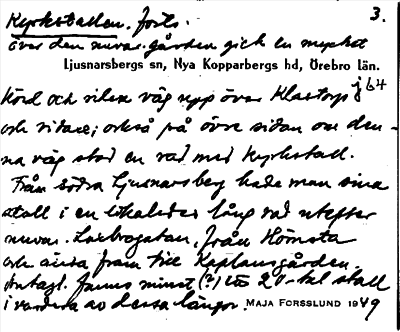 Kyrkstallen. forts. 3.
över den nuvar. gården gick en mycket
Ljusnarsbergs sn, Nya Kopparbergs hd, Örebro län.
körd och viken väg upp över Klastorp
och vidare; också på övre sidan om den-
na väg stod en rad med kyrkstall.
Från södra Ljusnarsberg hade man sina
stall i en likaledes lång rad utefter
nuvar. Laxbrogatan, från Hömsta
och ända fram till Kaplansgården.
Antagl. fanns minst (?) 20-tal stall
i vardera av dessa längor. MAJA FORSSLUND 1949